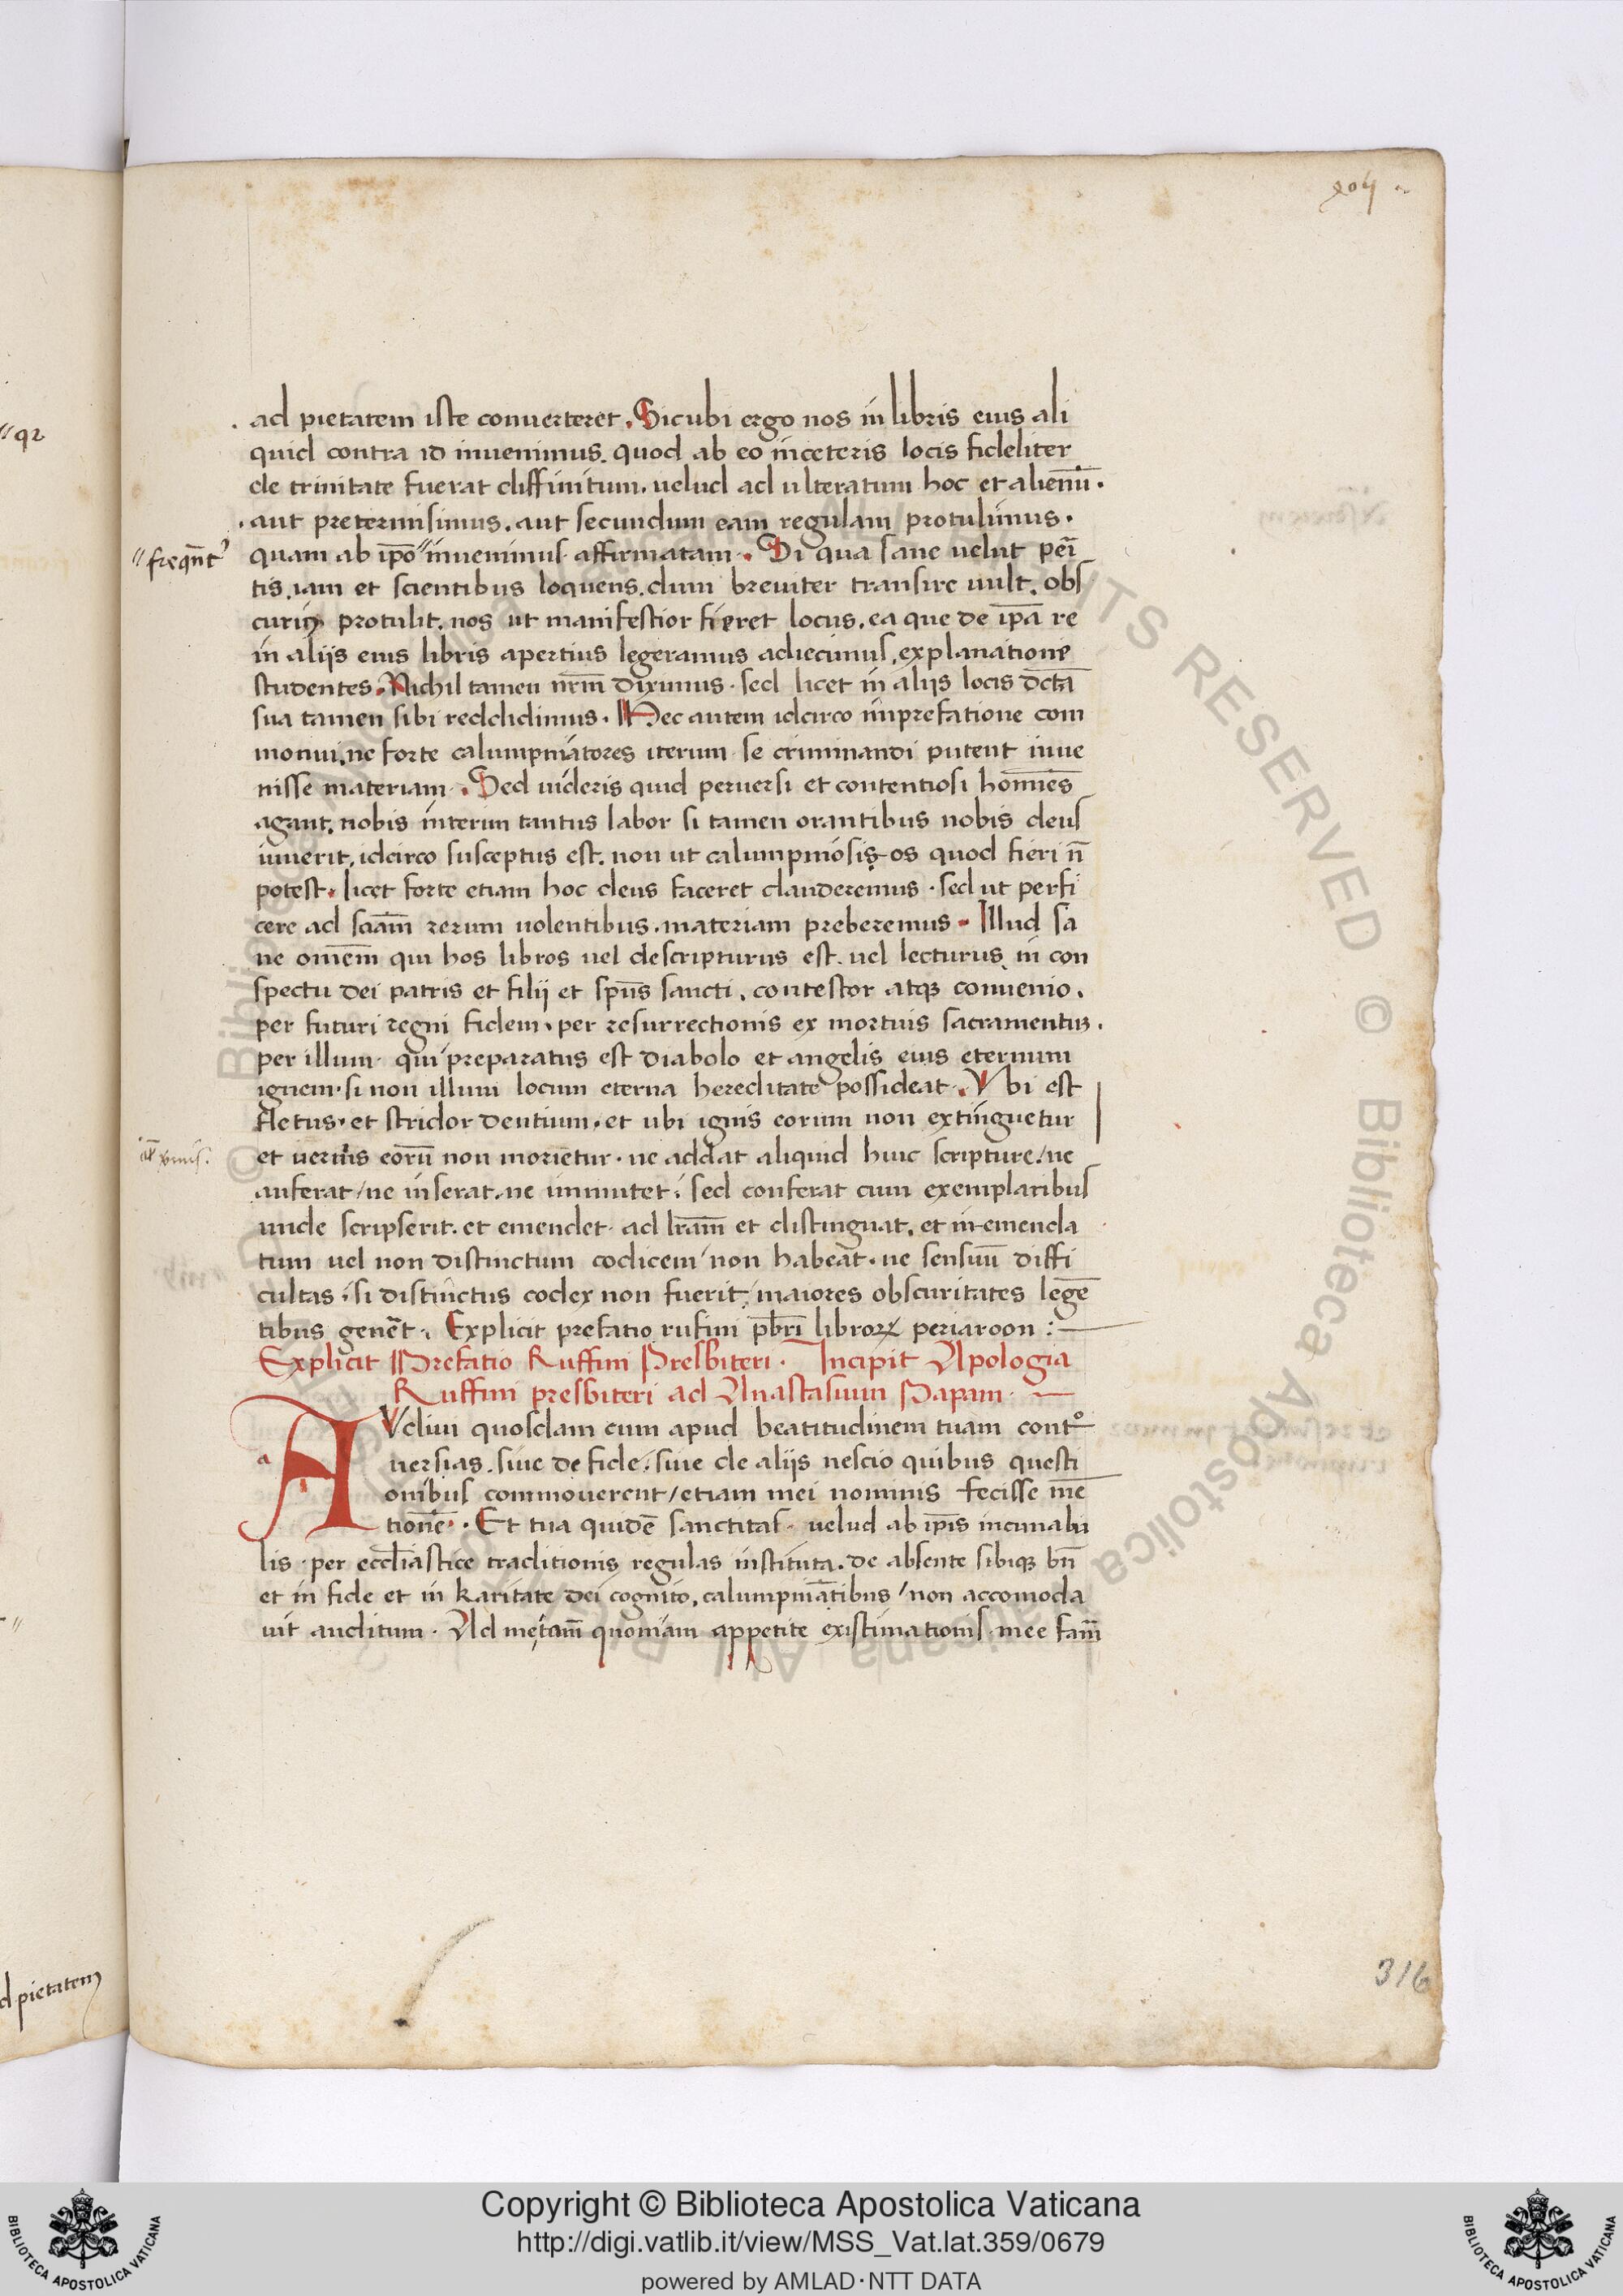 204
. ad pietatem iste conuerteret. Sicubi ergo nos in libris eius ali
quid contra id inuenimus. quod ab eo inceteris locis fideliter
de trinitate fuerat diffinitum. uelud ad ulteratum hoc et alienũ.
. aut pretermisimus. aut secundum eam regulam protulimus.
"freqñt᾿
quam ab ip̅o" inuenimus affirmatam. Si qua sane uelut peri̅
tis. iam et scientibus loquens. dum breuiter transire uult. obs
curiꝰ protulit. nos ut manifestior fieret locus. ea que de ip̅a re
in aliis eius libris apertius legeramus adiecimus, explanatione
studentes. Nichil tamen nr̅m diximus. sed licet in aliis locis dc̅ta
sua tamen sibi reddidimus. Hec autem idcirco imprefatione com
monui. ne forte calumpniatores iterum se criminandi putent inue
nisse materiam. Sed uideris quid peruersi et contentiosi homi̅es
agant. nobis interim tantus labor si tamen orantibus nobis deus
iuuerit. idcirco susceptus est. non ut calumpniosis os quod fieri n̅
potest. licet forte etiam hoc deus faceret clauderemus. sed ut perfi
cere ad scia̅m rerum uolentibus. materiam preberemus. Illud sa
ne ome̅m qui hos libros uel descripturus est. uel lecturus in con
spectu dei patris et filii et sp̅us sancti. contestor atqꝫ conuenio.
per futuri regni fidem. per resurrectionis ex mortuis sacramentuꝫ.
per illum qui preparatus est diabolo et angelis eius eternum
ignem. si non illum locum eterna hereditate possideat. Vbi est
fletus. et stridor dentium. et ubi ignis eorum non extinguetur
et uermis eoru̅ non morie̅tur. ne addat aliquid huic scripture/ ne
auferat/ ne inserat. ne immutet. sed conferat cum exemplaribus
unde scripserit. et emendet ad lr̅am et distinguat. et in emenda
tum uel non distinctum codicem non habeat. ne sensuu̅ diffi
cultas. si distinctus codex non fuerit, maiores obscuritates lege̅
tibus gene̅t. Explicit prefatio rufini pb̅ri libroꝝ periarcon :—
Explicit Prefatio Ruffini Presbiteri. Incipit Apologia
Ruffini presbiteri ad Anastasium Papam. —
a
AVdiui quosdam cum apud beatitudinem tuam contͦ
uersias. siue de fide. siue de aliis nescio quibus questi
onibus commouerent/ etiam mei nominis fecisse me̅
tione̅. Et tua quide̅ sanctitas uelud ab ip̅is incunabu
lis per eccl̅iastice traditionis regulas instituta. de absente sibiqꝫ bn̅
et in fide et in karitate dei cognito. calumpnia̅tibus/ non accomoda
uit auditum. Ad meta̅m quoniam appetite existimationis mee fam̅
316
"qꝛ
d pietatem
Copyright © Biblioteca Apostolica Vaticana
http://digi.vatlib.it/view/MSS_Vat.lat.359/0679
powered by AMLAD·NTT DATA
BIBLIOTECA APOSTOLICA VATICANA
BIBLIOTECA APOSTOLICA VATICANA